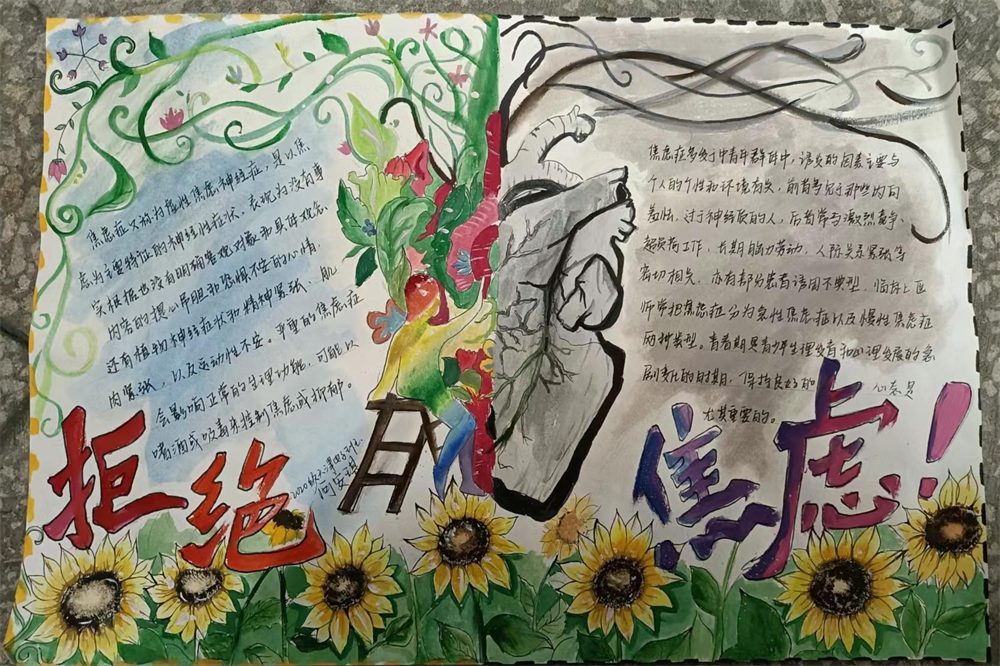 焦虑症又称为慢性焦虑神经症，是以焦
虑为主要特征的神经性症状，表现为没有事
实根据也没有明确客观对象和具体观念
内容的提心吊胆和恐惧不安的心情，
还有植物神经症状和精神紧张、肌
肉紧张，以及运动性不安。严重的焦虑症
会影响正常的生理功能，可能以
嗜酒或吸毒来控制焦虑或抑郁。
何安琪
焦虑症多发于中青年群体中，诱发的因素主要与
个人的个性和环境有关，前者多见于那些内向
羞怯、过于神经质的人，后者常与激烈竞争、
超负荷工作、长期脑力劳动、人际关系紧张等
密切相关，亦有部分患者诱因不典型。临床上医
师常把焦虑症分为急性焦虑症以及慢性焦虑症
两种类型。青春期是青少年生理发育和心理发展的急
剧变化的时期，保持良好的 心态是
尤其重要的。
拒绝
焦虑！